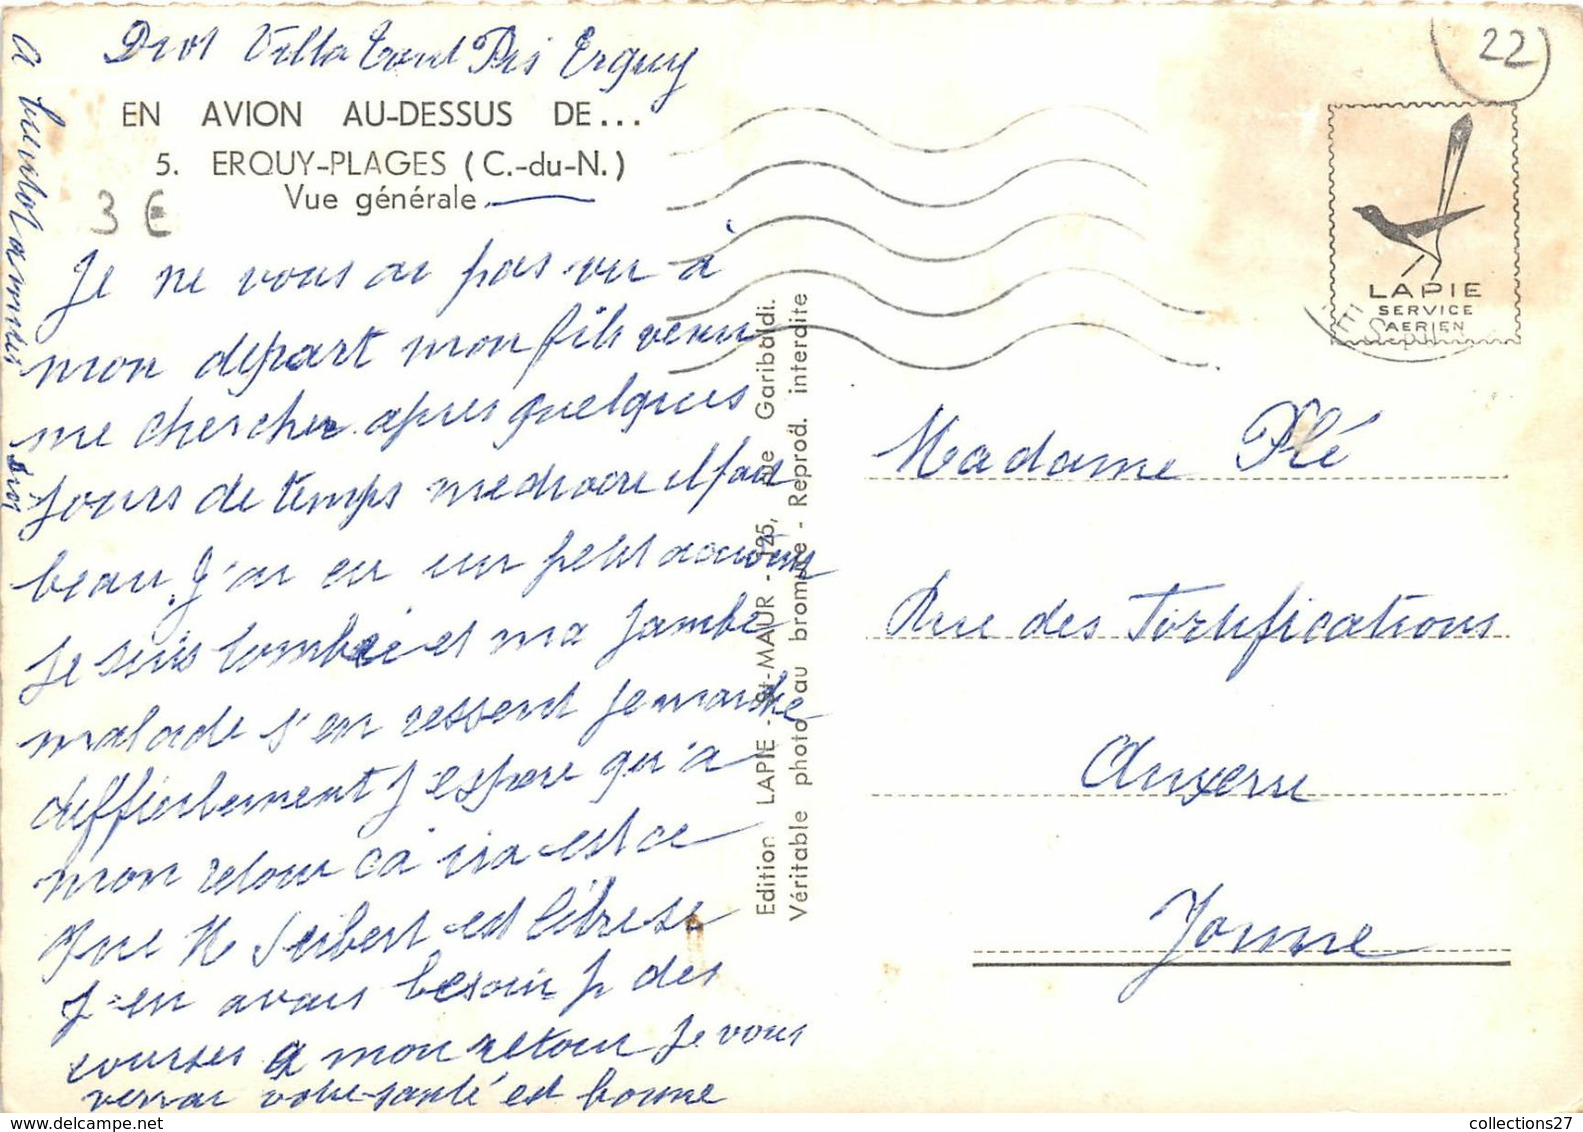 Drot Villa Tout Pris Erquy
EN AVION AU-DESSUS DE...
5. ERQUY-PLAGES (C.-du-N.)
Vue générale
3 €
Je ne vous ai pas vu à
mon départ mon fils venu
me chercher après quelques
jours de temps mediocre il fait
beau. J'ai eu un petit
Je suis tombée et ma jambe
malade s'en ressent Je marche
difficilement J espère qu'a
mon retour ca ira est ce
que Mr Seibert est libre si
J en avais besoin pr des
courses a mon retour Je vous
verrai votre santé est bonne
a bientot amities
Drot
Edition LAPIE - St-MAUR - 125, rue Garibaldi.
Véritable photo au bromure - Reprod. interdite
22
LAPIE
SERVICE
AERIEN
Madame Plé
Rue des Fortifications
Auxerre
Yonne
collections27